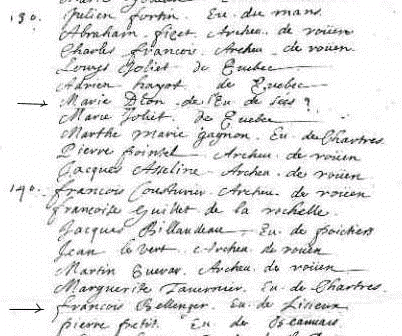 130. Julien fortin. Eu. du mans.
Abraham ficet Archeu. de roüen
Charles francois. Archeu. de roüen.
Louys Joliet de Quebec
Adrien hayot de Quebec
→ Marie Dion de l'Eu. de sees ?
Marie Joliet. de Quebec
Marthe marie gagnon. Eu. de Chartres.
Pierre pointel Archeu. de roüen
Jacques Asseline Archeu. de roüen
140. francois Cousturier. Archeu. de roüen
francoise Guillet de la rochelle.
Jacques Billaudeau Eu. de poictiers
Jean le vert. Archeu de roüen
Martin Archeu. de roüen
Marguerite Tavernier. Eu. de Chartres.
→ francois Bellenger. Eu. de Lisieux
pierre petit. Eu. de Beauuais.